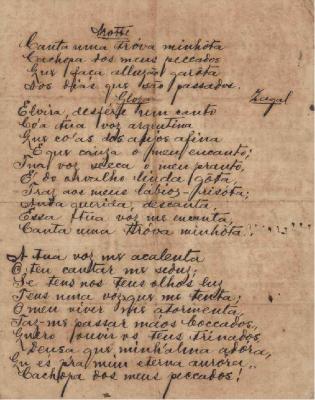 Motte
Canta uma tróva minhôta
Cachopa dos meus peccados
Que faça allusão garôta
Dos dias que são passados.
Glosa Zagal
Elvira, desfére um canto
Co'a tua voz argentina
Que co'as dos anjos afina
E que causa o meu encanto;
Tua voz secca o meu pranto,
É do orvalho linda gôta
Traz aos meus lábios
Anda querida, descanta,
Essa tua voz me encanta,
Canta uma tróva minhôta.
A tua voz me acalenta
O teu cantar me seduz;
Se tens nos teus olhos luz
Tens n'uma voz que me tenta;
O meu viver me atormenta,
Faz-me passar máos boccados,
Quero ouvir os teus trinados,
Deusa que minh'alma adora,
Tu és p'ra mim eterna aurora,
Cachopa dos meus peccados!